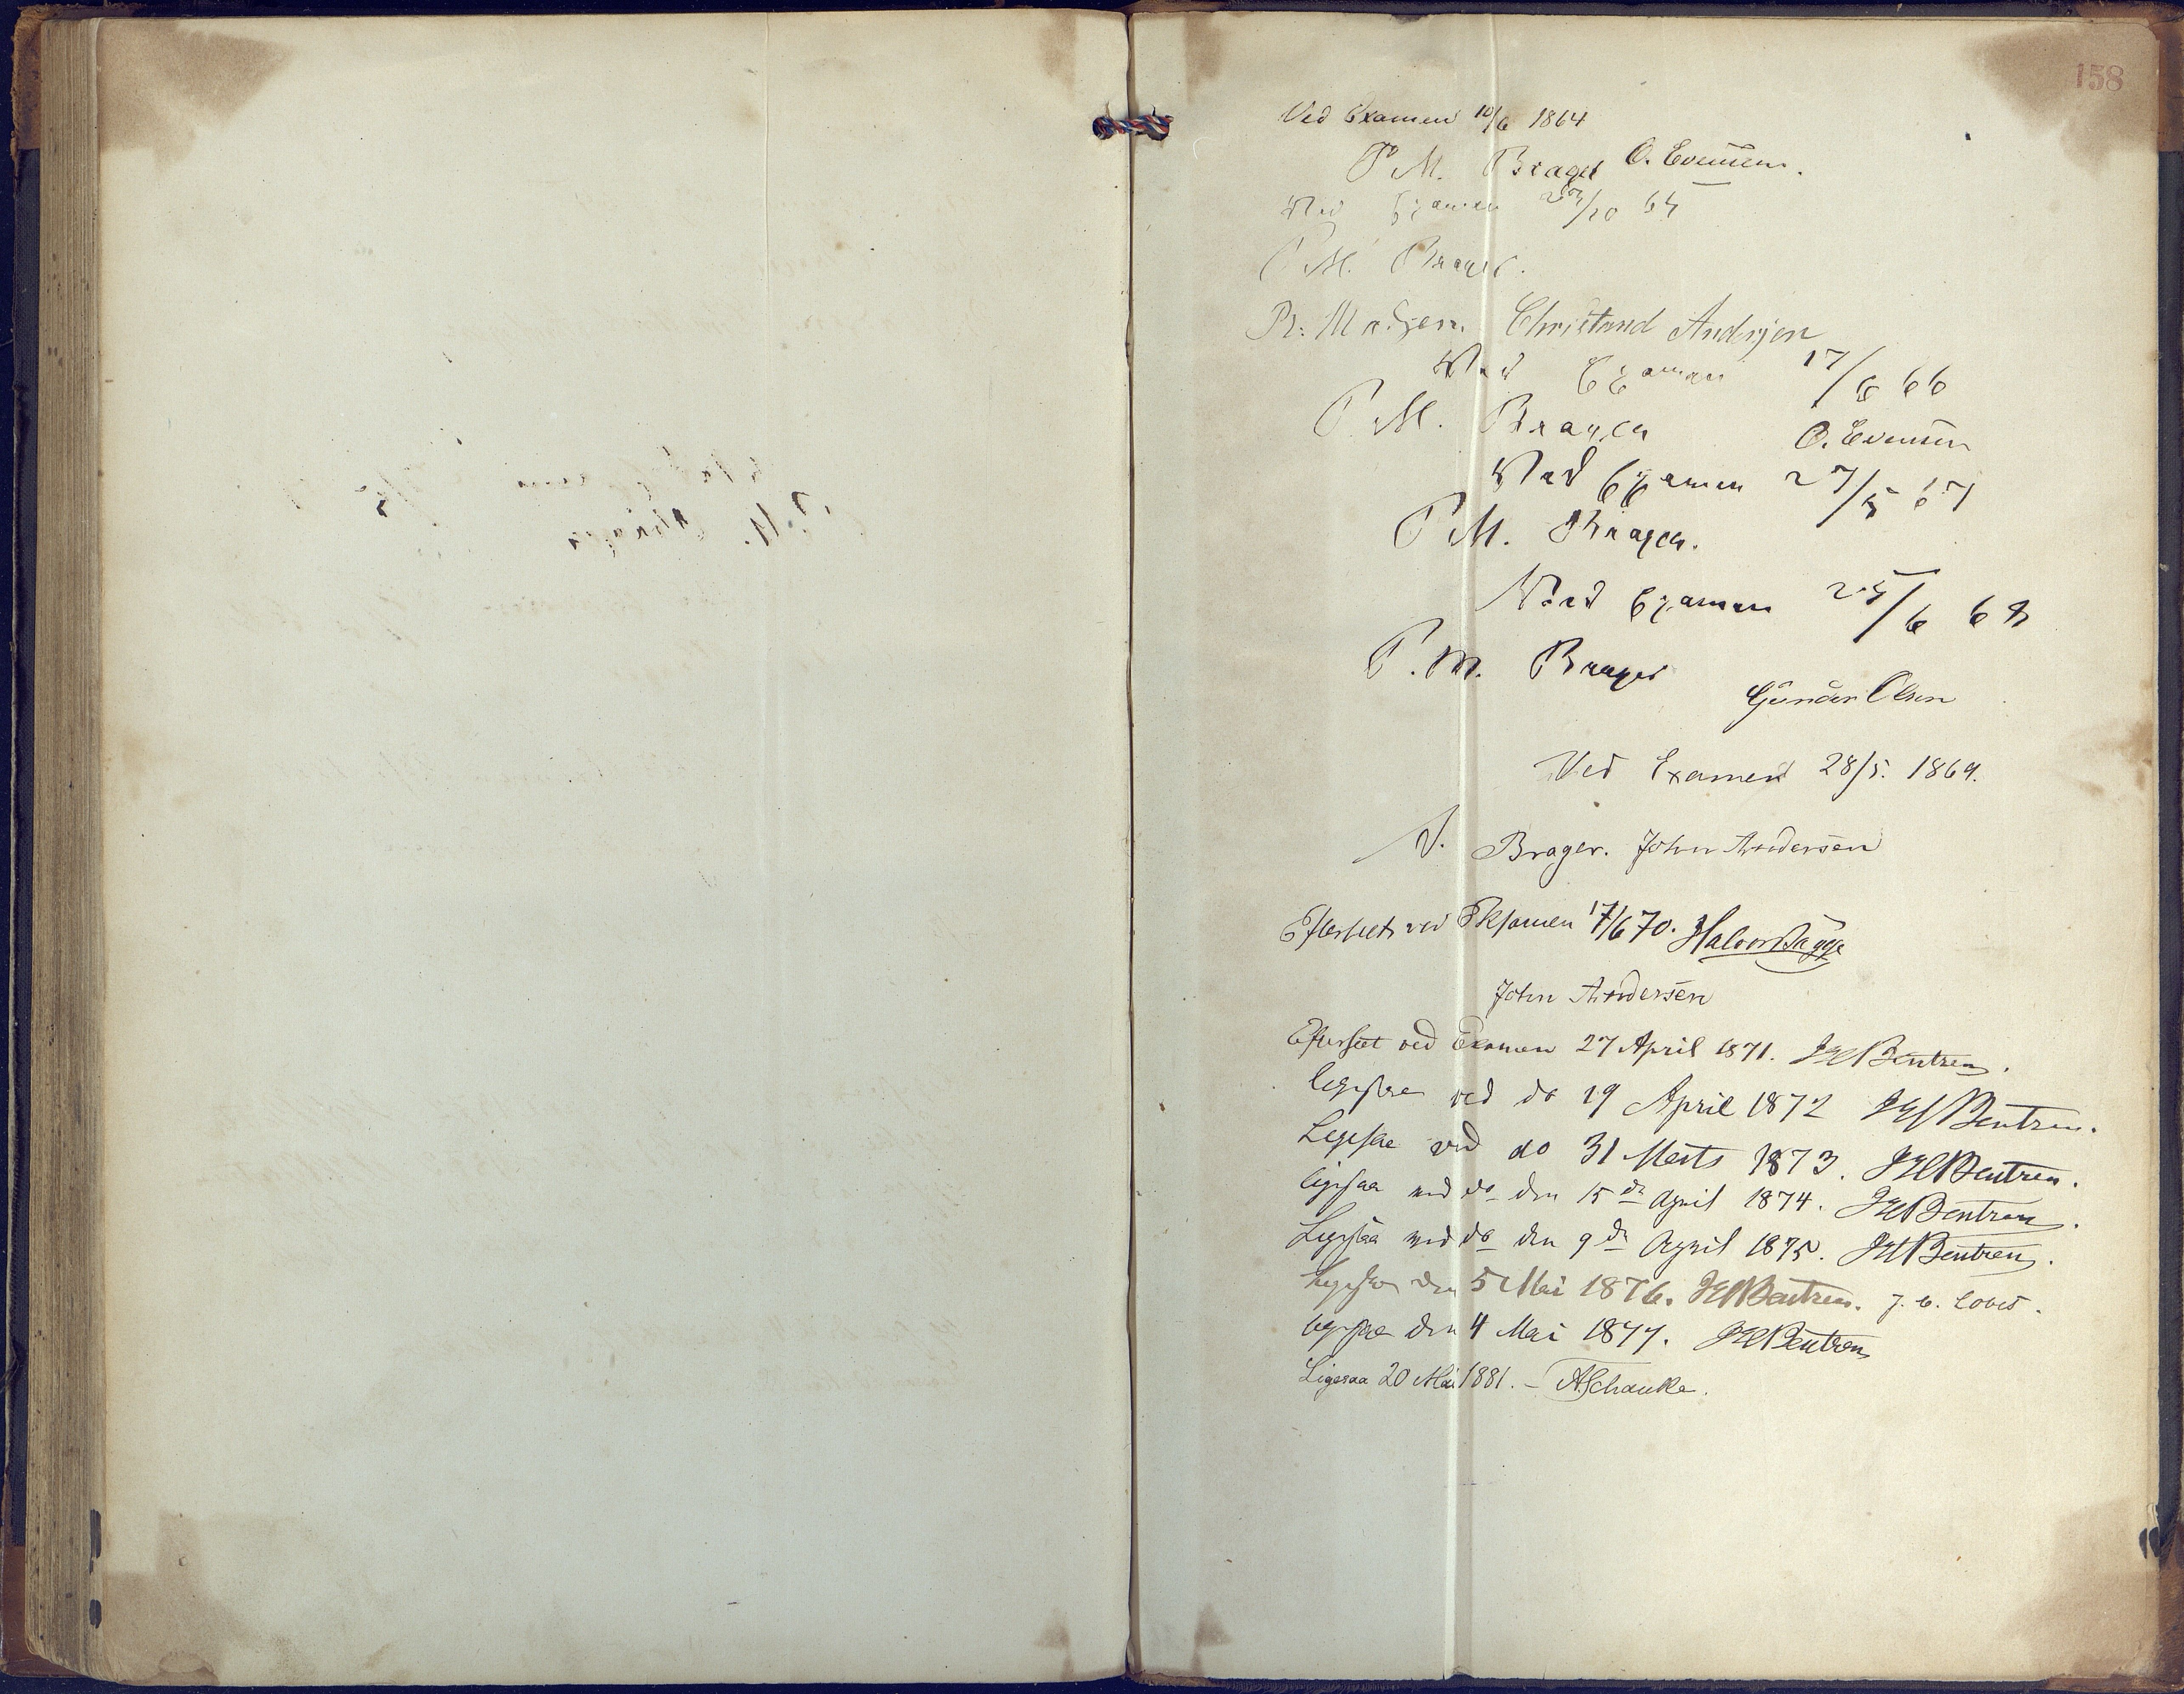 158
Ved Examen 10/6 1864
P M. Brager O. Evensen.
Ved Examen /10 65
P M. Brager.
P. Madsen. Christand Andersen
Ved Examen 17/6 66
P. M. Brager O. Evensen
Ved Examen 27/5 67
P M. Brager.
Ved Examen 25/6 68
P. M. Brager
Gunder Olsen
Ved Examen 28/5. 1869.
Brager. John Andersen
Efterseet ved Eksamen 17/6 70. Halvor Bagge
John Andersen
Efterseet ved Examen 27 April 1871. Bentzen.
ligesaa ved do 19 April 1872 Bentzen.
Ligesaa ved do 31 Marts 1873. Bentzen.
ligesaa ved do den 15de April 1874. Bentzen.
Ligesaa ved do den 9de April 1875. Bentzen.
Ligesaa den 5 Mai 1876. Bentzen.
ligesaa den 4 Mai 1877. Bentzen
Ligesaa 20 Mai 1881. – ASchanke.